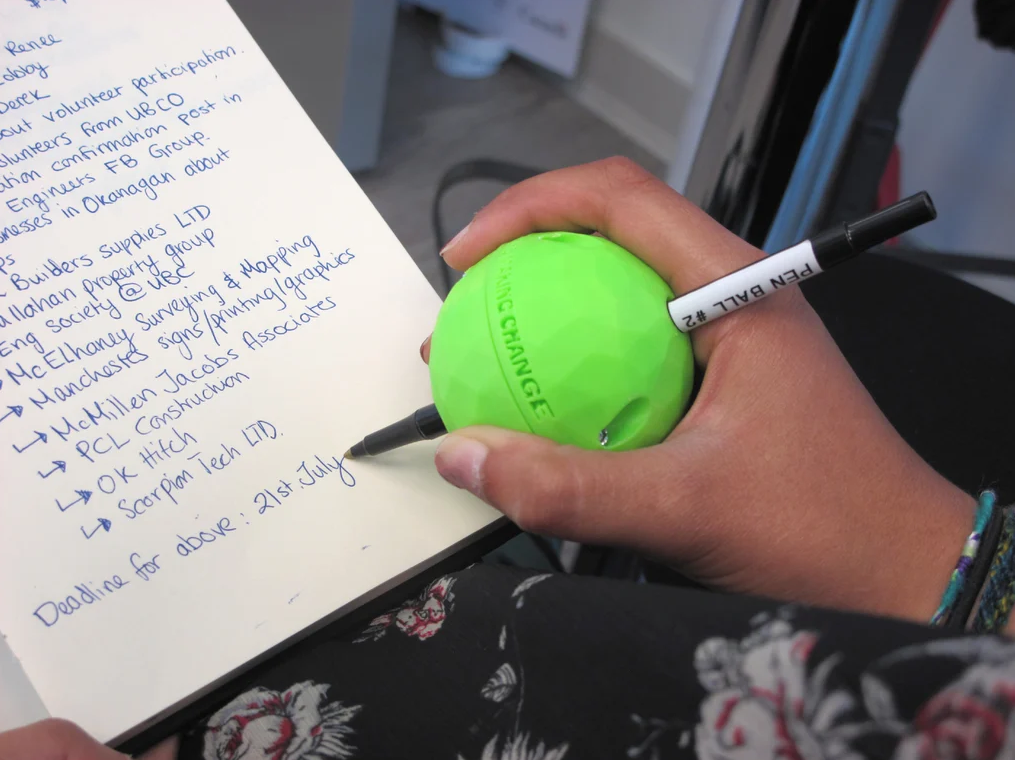 Renee
Derek
out volunteer participation.
volunteers from UBCO
confirmation post in
Engineers FB Group.
in Okanagan about
Builders supplies LTD
property group
Eng society @ UBC
McElhaney Surveying & Mapping
Manchester signs/printing/graphics
↳ McMillen Jacobs Associates
↳ PCL Construction
↳ OK Hitch
↳ Scorpion Tech LTD.
Deadline for above: 21st July
CHANGE
PEN BALL #2